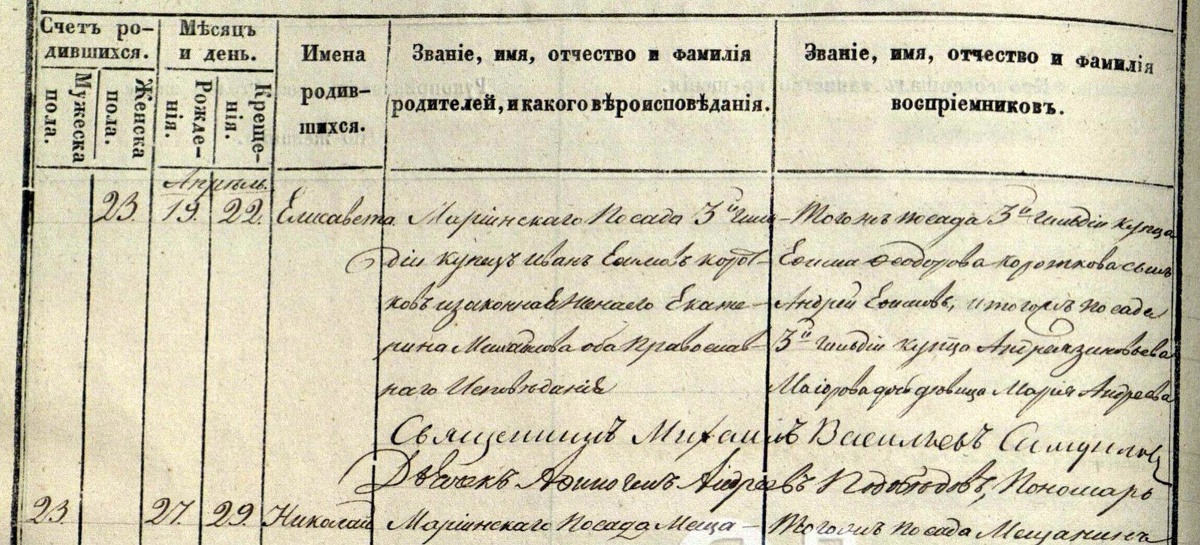 Счетъ ро-
дившихся.
Мужеска
пола.
Женска
пола.
Мѣсяцъ
и день.
Рожде-
нія.
Креще-
нія.
Имена
родив-
шихся.
Званіе, имя, отчество и фамилія
родителей, и какого вѣроисповѣданія.
Званіе, имя, отчество и фамилія
воспріемниковъ.
Апрѣль.
23
19.
22.
Елисавета.
Маріинскаго Посада 3й гиль-
діи купецъ Иванъ Ефимовъ Корот-
ковъ и законная жена его Екате-
рина Михайлова оба Православ-
наго Исповѣданія
Тогожъ посада 3й гильдіи купца
Ефима Феодорова Короткова сынъ
Андрей Ефимовъ, и тогожъ посада
3й гильдіи купца Андрея Зиновьева
Маіорова дочь дѣвица Марія Андреева
Священникъ Михаилъ Васильевъ
Дьячекъ Афиногенъ Андреевъ Пономарь
23.
27.
29.
Николай
Маріинскаго Посада Меща-
Тогожъ посада Мещанинъ